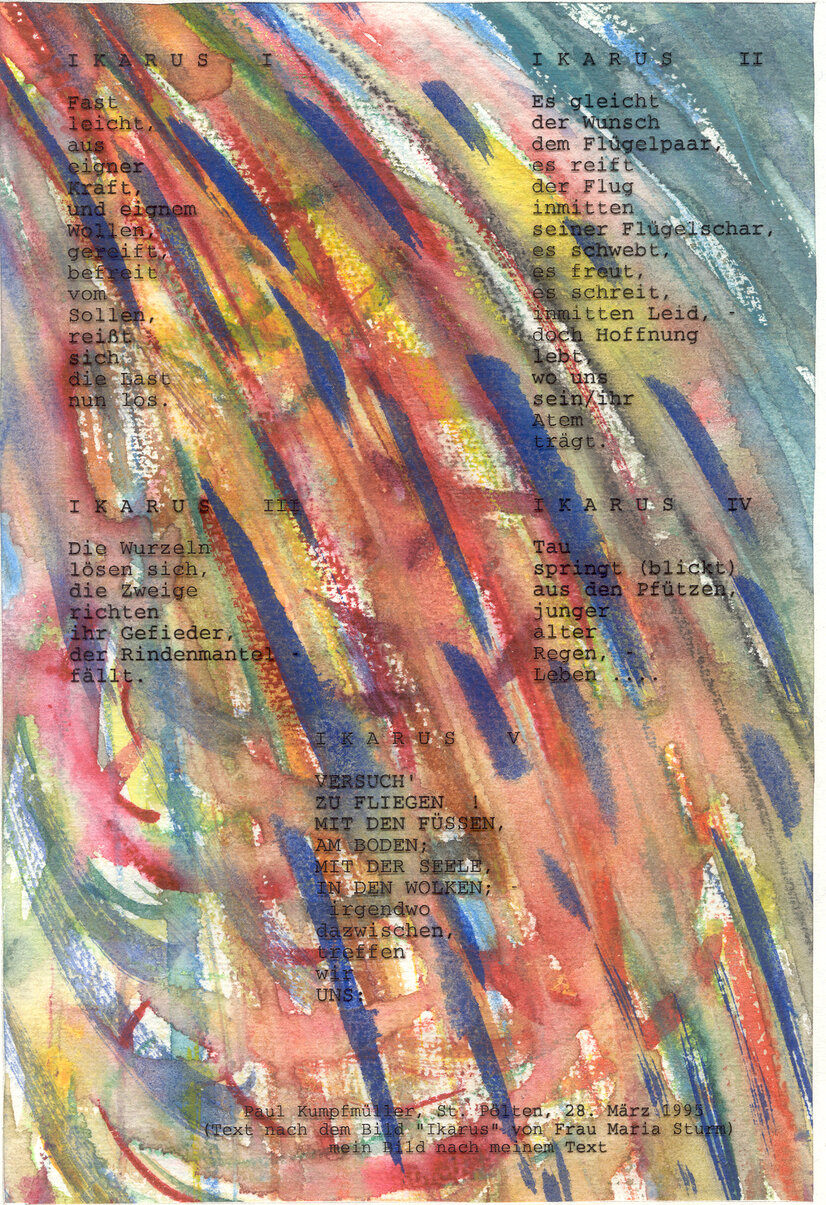 IKARUS I
Fast
leicht,
aus
eigner
Kraft,
und eignem
Wollen,
gereift,
befreit
vom
Sollen,
reißt
sich
die Last
nun los.
IKARUS II
Es gleicht
der Wunsch
dem Flügelpaar,
es reift
der Flug
inmitten
seiner Flügelschar,
es schwebt,
es freut,
es schreit,
inmitten Leid, -
doch Hoffnung
lebt,
wo uns
sein/ihr
Atem
trägt.
IKARUS III
Die Wurzeln
lösen sich,
die Zweige
richten
ihr Gefieder,
der Rindenmantel -
fällt.
IKARUS IV
Tau
springt (blickt)
aus den Pfützen,
junger
alter
Regen, -
Leben ....
IKARUS V
VERSUCH'
ZU FLIEGEN !
MIT DEN FÜSSEN,
AM BODEN;
MIT DER SEELE,
IN DEN WOLKEN; -
irgendwo
dazwischen,
treffen
wir
UNS:
Paul Kumpfmüller, St. Pölten, 28. März 1995
(Text nach dem Bild "Ikarus" von Frau Maria Sturm)
mein Bild nach meinem Text